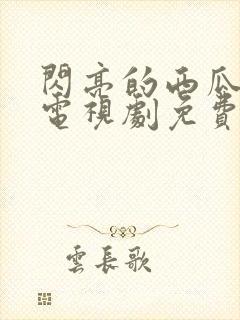 閃亮的西瓜
電視劇免費
雲長歌